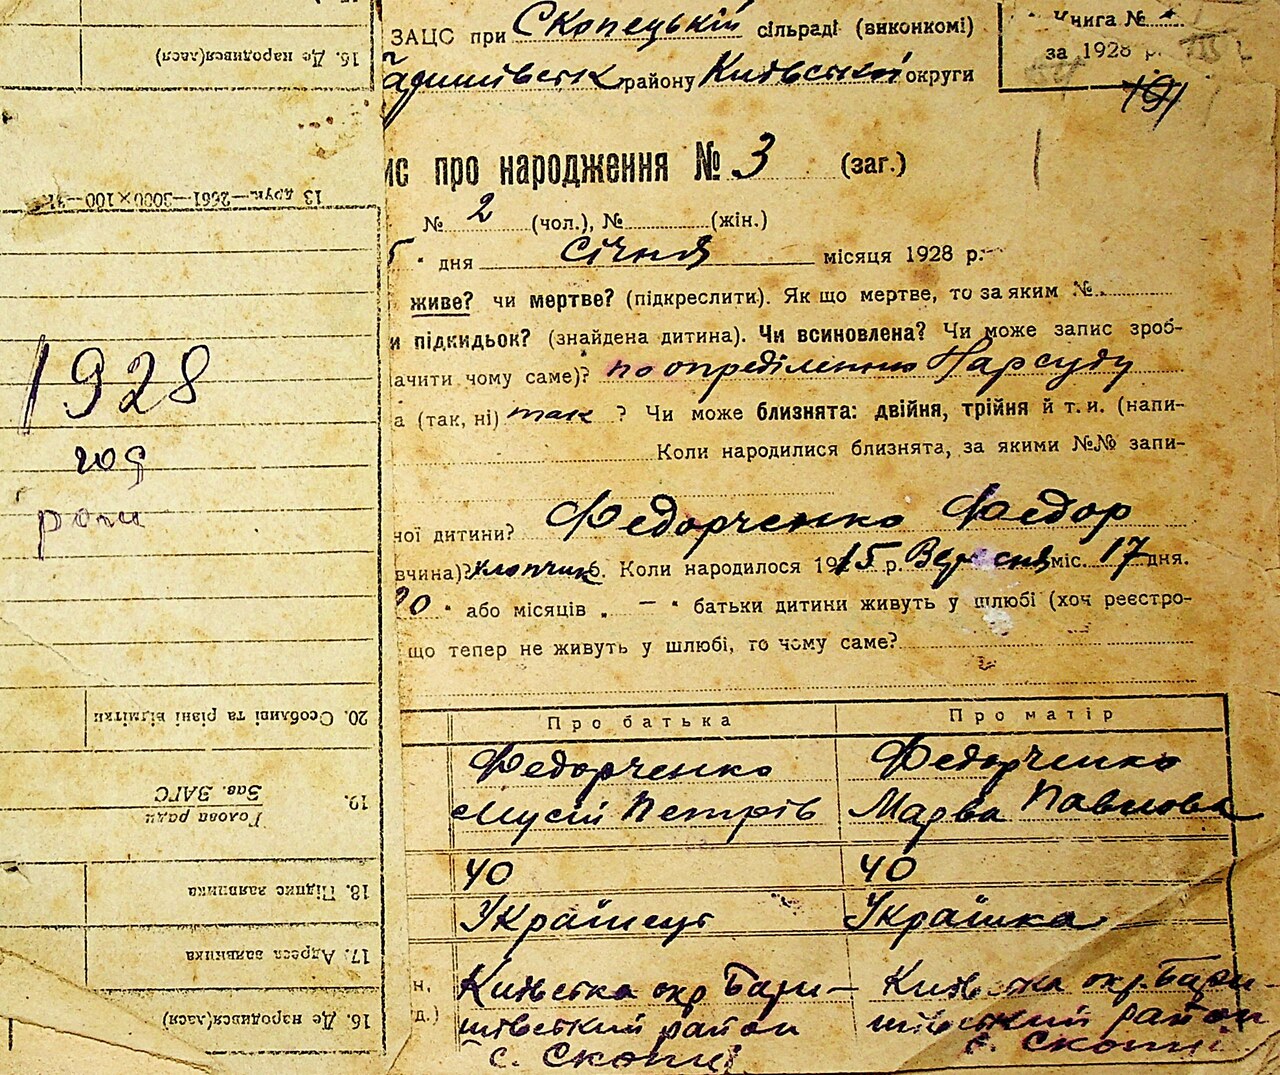 ЗАЦС при Скопецькій сільраді (виконкомі)
району Київської округи
Книга №
за 1928 р.
ис про народження № 3 (заг.)
№ 2 (чол.), № (жін.)
дня січня місяця 1928 р.
живе? чи мертве? (підкреслити). Як що мертве, то за яким №
и підкидьок? (знайдена дитина). Чи всиновлена? Чи може запис зроб-
ачити чому саме)? по определенню Нарсуду
а (так, ні) так ? Чи може близнята: двійня, трійня й т. и. (напи-
Коли народилися близнята, за якими №№ запи-
ної дитини? Федорченко Федор
вчина)? хлопчик 6. Коли народилося 1915 р. Вересня міс. 17 дня.
20 " або місяців „ — " батьки дитини живуть у шлюбі (хоч реєстро-
що тепер не живуть у шлюбі, то чому саме?
Про батька Про матір
Федорченко Федорченко
Мусій Петрів Марва Павлова
40 40
Українець Українка
н. Київська окр. Бари- Київська окр. Бари-
д.) шівський район шівський район
с. Скопці с. Скопці
16. Де народився(лася)
13 друк.—2661—3000×100
1928
год
роки
20. Особливі та різні відмітки
19. Голова ради
Зав. ЗАГС
18. Підпис заявника
17. Адреса заявника
16. Де народився(лася)